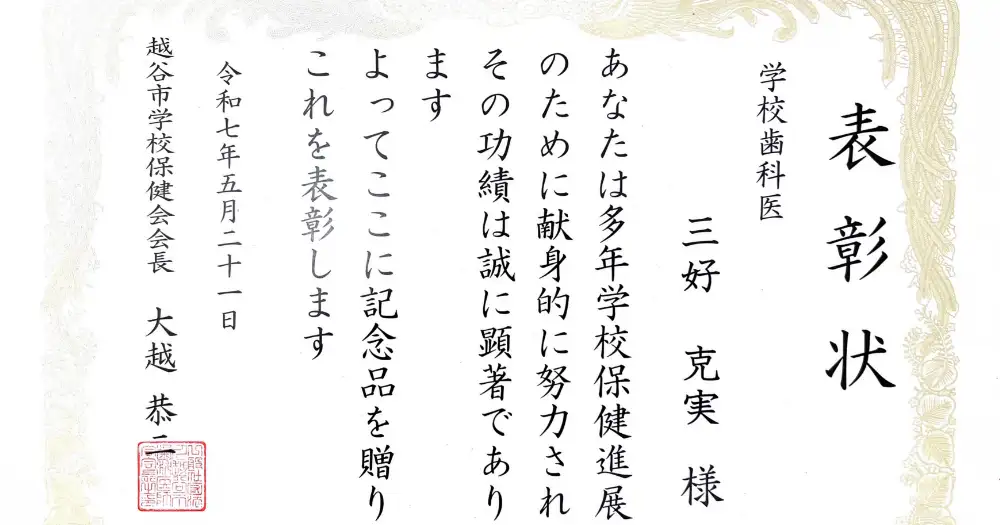 表彰状
学校歯科医
三好 克実 様
あなたは多年学校保健進展
のために献身的に努力され
その功績は誠に顕著であり
ます
よってここに記念品を贈り
これを表彰します
令和七年五月二十一日
越谷市学校保健会会長 大越 恭二